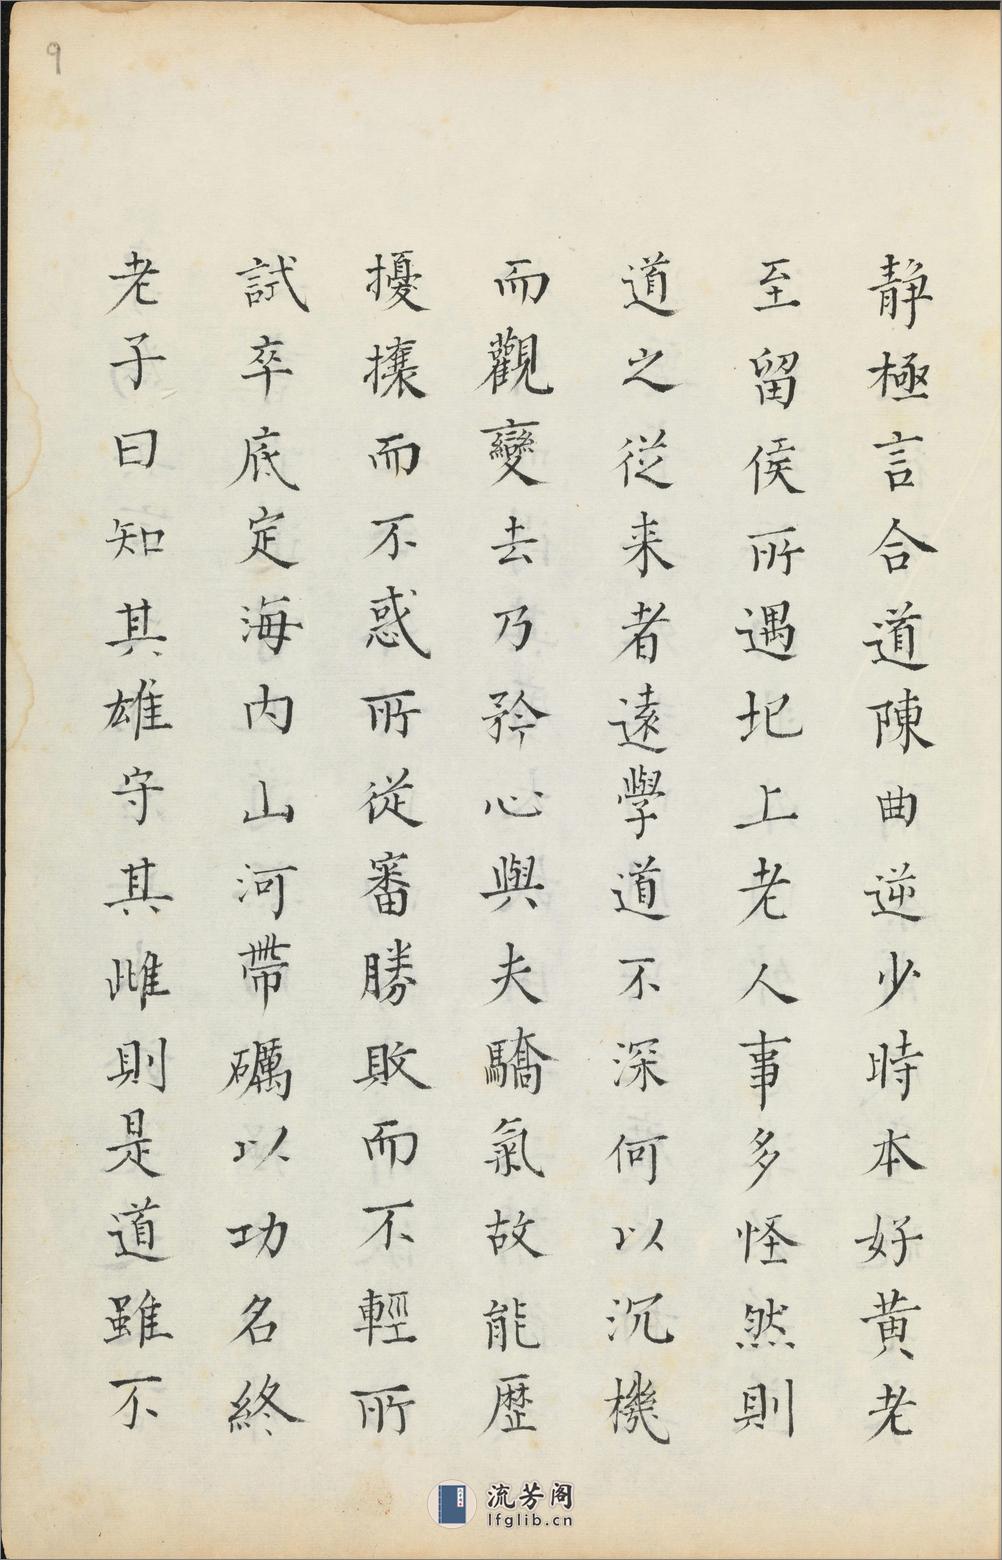 9
靜極言合道陳曲逆少時本好黃老
至留侯所遇圯上老人事多怪然則
道之從来者遠學道不深何以沉機
而觀變去乃矜心與夫驕氣故能歷
擾攘而不惑所從審勝敗而不輕所
試卒底定海内山河帶礪以功名終
老子曰知其雄守其雌則是道雖不
流芳阁
lfglib.cn